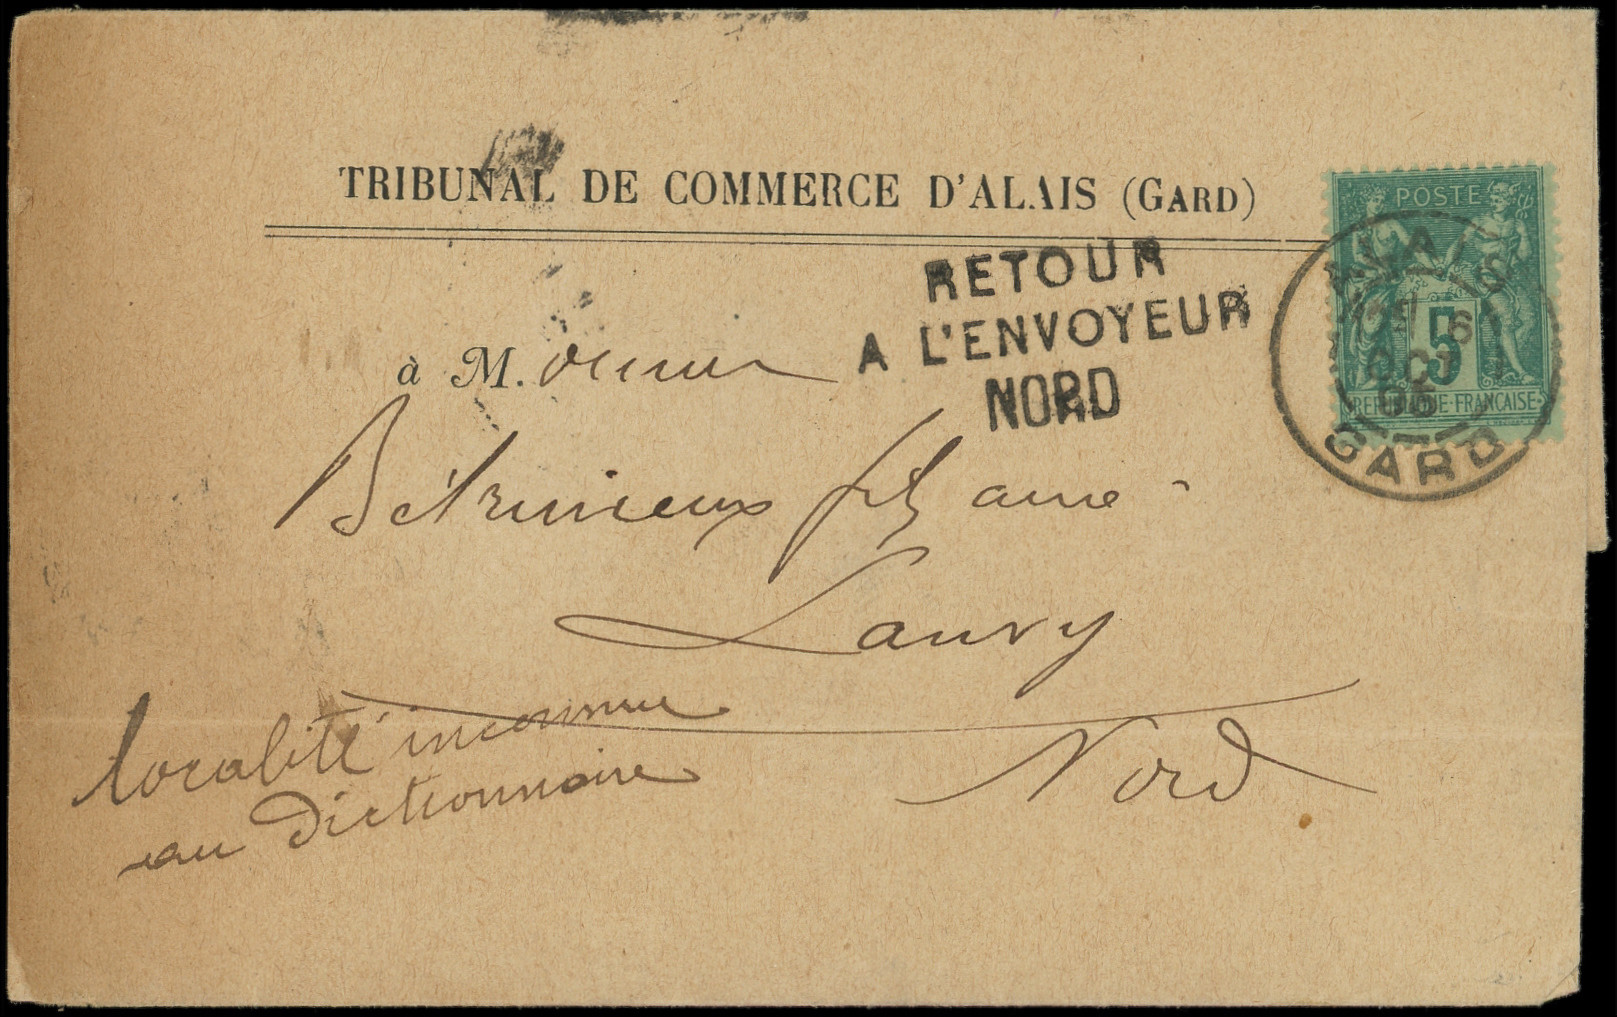 TRIBUNAL DE COMMERCE D'ALAIS (GARD)
POSTE
5
REPUBLIQUE FRANÇAISE
ALAIS
6
OCT
GARD
RETOUR
A L'ENVOYEUR
NORD
à M.
Bétrmieux fils ainé
Lanvy
Nord
localité inconnue
au dictionnaire